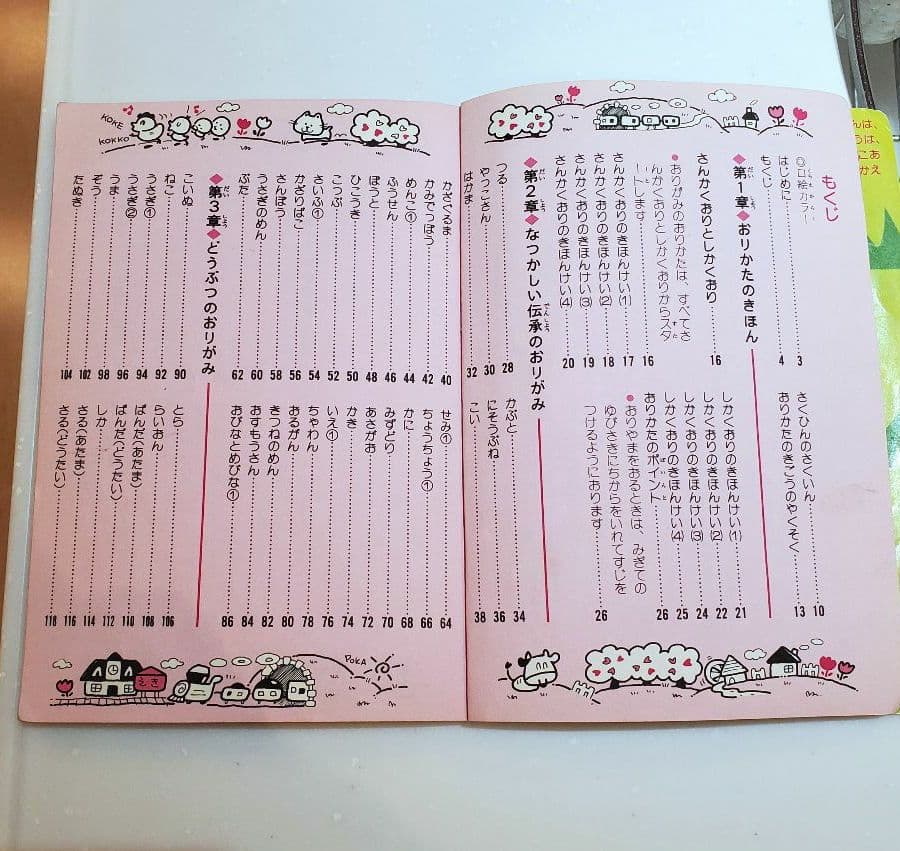 もくじ
◎口絵カラー
はじめに 3
もくじ 4
さくひんのさくいん 10
おりかたのきごうのやくそく 13
◆第1章◆おりかたのきほん
さんかくおりとしかくおり 16
●おりがみのおりかたは、すべてさ
んかくおりとしかくおりからスタ
ートします 16
さんかくおりのきほんけい(1) 17
さんかくおりのきほんけい(2) 18
さんかくおりのきほんけい(3) 19
さんかくおりのきほんけい(4) 20
しかくおりのきほんけい(1) 21
しかくおりのきほんけい(2) 22
しかくおりのきほんけい(3) 24
しかくおりのきほんけい(4) 25
おりかたのポイント 26
●おりやまをおるときは、みぎての
ゆびさきにちからをいれてすじを
つけるようにおります 26
◆第2章◆なつかしい伝承のおりがみ
つる 28
やっこさん 30
はかま 32
かぶと 34
にそうぶね 36
こい 38
KOKE
KOKKO
かざぐるま 40
かみでっぽう 42
めんこ① 44
ふうせん 46
ぼうと 48
ひこうき 50
こっぷ 52
さいふ① 54
かざりばこ 56
さんぽう 58
うさぎのめん 60
ぶた 62
せみ① 64
ちょうちょう① 66
かに 68
みずどり 70
あさがお 72
かき 74
いえ① 76
ちゃわん 78
おるがん 80
きつねのめん 82
おすもうさん 84
おびなとめびな① 86
◆第3章◆どうぶつのおりがみ
こいぬ 90
ねこ 92
うさぎ① 94
うさぎ② 96
うま 98
ぞう 102
たぬき 104
とら 106
らいおん 108
ぱんだ(あたま) 110
ぱんだ(どうたい) 112
しか 114
さる(あたま) 116
さる(どうたい) 118
えき
POKA